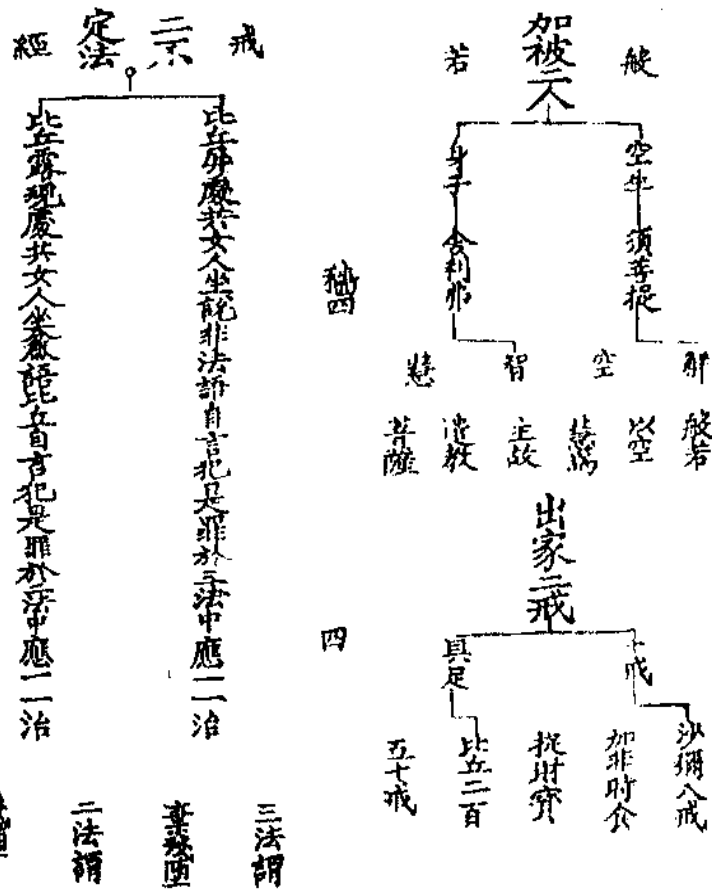 般
加被二人
若
空生 須菩提
身子 舍利弗
解
空
智
慧
般若
以空
為
主故
遣教
菩薩
出家二戒
十戒
具足
沙彌八戒
加非時食
捉財寶
比丘二百
五十戒
四
戒
二不
定法
經
比丘屏處共女人坐說非法語自言犯是罪於三法中應一一治
比丘露現處共女人坐麤語比丘自言犯是罪於二法中應一一治
三法謂
棄殘墮
二法謂